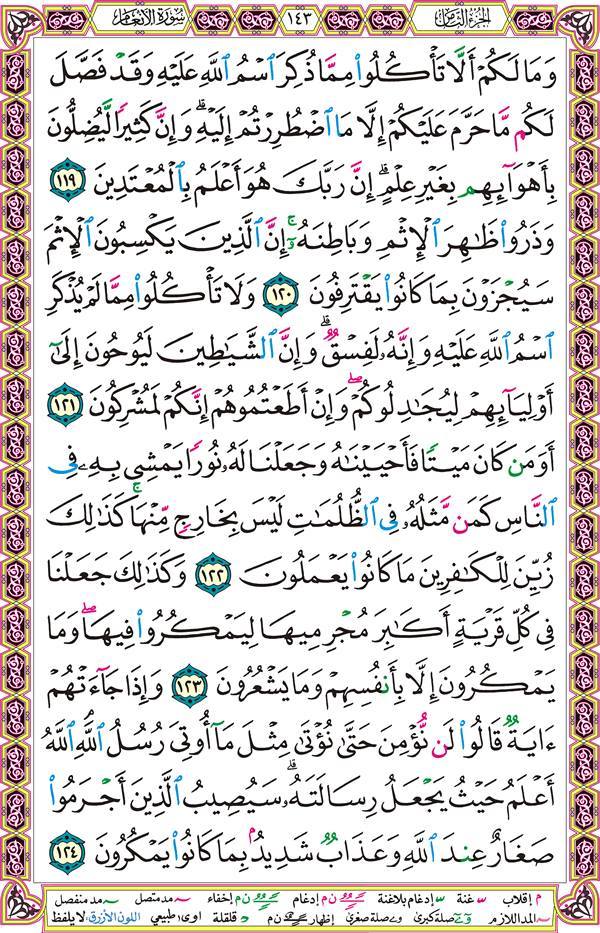 الجزء الثامن
١٤٣
سورة الأنعام
وَمَا لَكُمْ أَلَّا تَأْكُلُوا۟ مِمَّا ذُكِرَ ٱسْمُ ٱللَّهِ عَلَيْهِ وَقَدْ فَصَّلَ
لَكُم مَّا حَرَّمَ عَلَيْكُمْ إِلَّا مَا ٱضْطُرِرْتُمْ إِلَيْهِ ۗ وَإِنَّ كَثِيرًا لَّيُضِلُّونَ
بِأَهْوَآئِهِم بِغَيْرِ عِلْمٍ ۗ إِنَّ رَبَّكَ هُوَ أَعْلَمُ بِٱلْمُعْتَدِينَ ١١٩
وَذَرُوا۟ ظَٰهِرَ ٱلْإِثْمِ وَبَاطِنَهُۥٓ ۚ إِنَّ ٱلَّذِينَ يَكْسِبُونَ ٱلْإِثْمَ
سَيُجْزَوْنَ بِمَا كَانُوا۟ يَقْتَرِفُونَ ١٢٠ وَلَا تَأْكُلُوا۟ مِمَّا لَمْ يُذْكَرِ
ٱسْمُ ٱللَّهِ عَلَيْهِ وَإِنَّهُۥ لَفِسْقٌ ۗ وَإِنَّ ٱلشَّيَٰطِينَ لَيُوحُونَ إِلَىٰٓ
أَوْلِيَآئِهِمْ لِيُجَٰدِلُوكُمْ ۖ وَإِنْ أَطَعْتُمُوهُمْ إِنَّكُمْ لَمُشْرِكُونَ ١٢١
أَوَمَن كَانَ مَيْتًا فَأَحْيَيْنَٰهُ وَجَعَلْنَا لَهُۥ نُورًا يَمْشِى بِهِۦ فِى
ٱلنَّاسِ كَمَن مَّثَلُهُۥ فِى ٱلظُّلُمَٰتِ لَيْسَ بِخَارِجٍ مِّنْهَا ۚ كَذَٰلِكَ
زُيِّنَ لِلْكَٰفِرِينَ مَا كَانُوا۟ يَعْمَلُونَ ١٢٢ وَكَذَٰلِكَ جَعَلْنَا
فِى كُلِّ قَرْيَةٍ أَكَٰبِرَ مُجْرِمِيهَا لِيَمْكُرُوا۟ فِيهَا ۖ وَمَا
يَمْكُرُونَ إِلَّا بِأَنفُسِهِمْ وَمَا يَشْعُرُونَ ١٢٣ وَإِذَا جَآءَتْهُمْ
ءَايَةٌ قَالُوا۟ لَن نُّؤْمِنَ حَتَّىٰ نُؤْتَىٰ مِثْلَ مَآ أُوتِىَ رُسُلُ ٱللَّهِ ٱللَّهُ
أَعْلَمُ حَيْثُ يَجْعَلُ رِسَالَتَهُۥ ۗ سَيُصِيبُ ٱلَّذِينَ أَجْرَمُوا۟
صَغَارٌ عِندَ ٱللَّهِ وَعَذَابٌ شَدِيدٌۢ بِمَا كَانُوا۟ يَمْكُرُونَ ١٢٤
م إقلاب غنة إدغام بلاغنة ن م إدغام ن م إخفاء مد متصل مد منفصل
المد اللازم صلة كبرى صلة صغرى إظهار ن م قلقلة اوى طبيعي اللون الأزرق: لا يلفظ